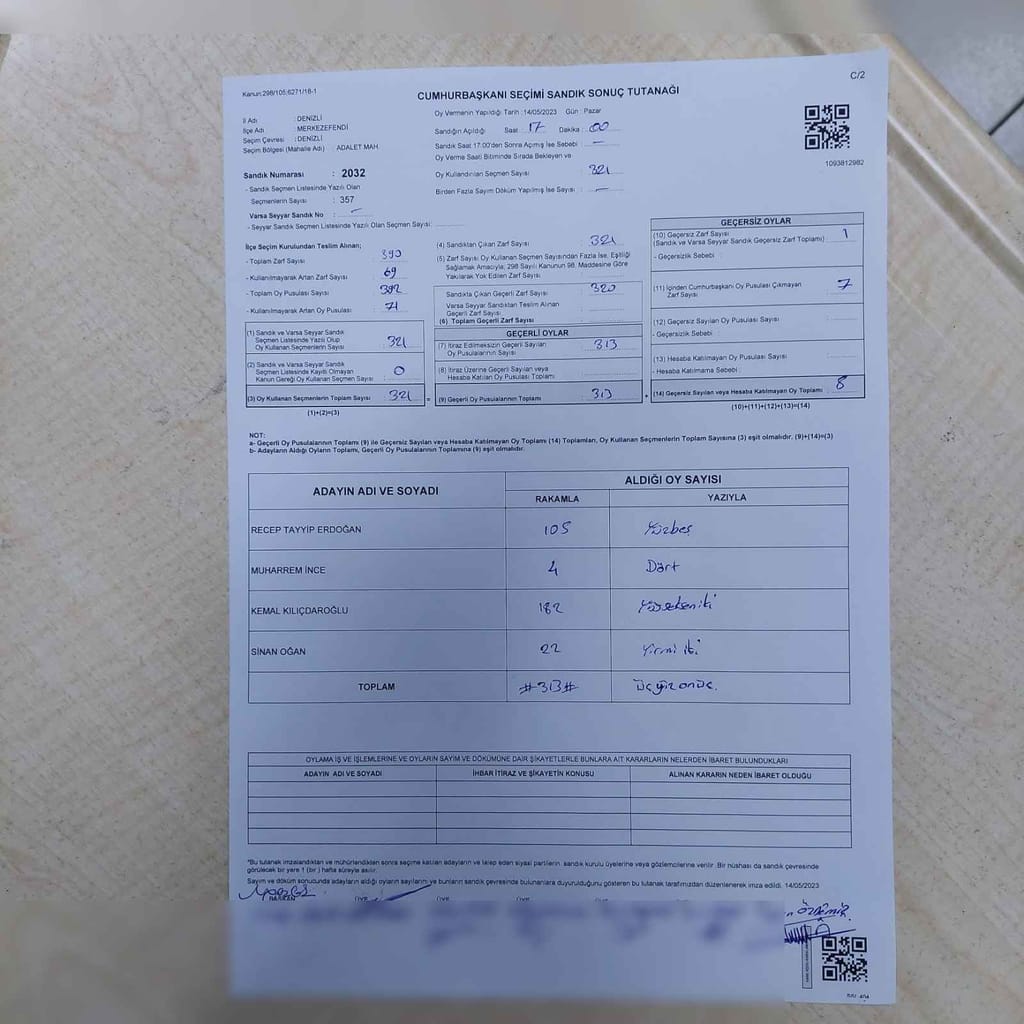 C/2
Kanun:298/105;6271/18-1
CUMHURBAŞKANI SEÇİMİ SANDIK SONUÇ TUTANAĞI
İl Adı : DENİZLİ
İlçe Adı : MERKEZEFENDİ
Seçim Çevresi : DENİZLİ
Seçim Bölgesi (Mahalle Adı) : ADALET MAH.
Sandık Numarası : 2032
- Sandık Seçmen Listesinde Yazılı Olan
Seçmenlerin Sayısı : 357
Varsa Seyyar Sandık No : –
- Seyyar Sandık Seçmen Listesinde Yazılı Olan Seçmen Sayısı:
Oy Vermenin Yapıldığı Tarih :14/05/2023 Gün : Pazar
Sandığın Açıldığı Saat : 17 Dakika : 00
Sandık Saat 17:00'den Sonra Açımış İse Sebebi : –
Oy Verme Saati Bitiminde Sırada Bekleyen ve
Oy Kullandırılan Seçmen Sayısı : 321
Birden Fazla Sayım Döküm Yapılmış İse Sayısı : –
1093812982
İlçe Seçim Kurulundan Teslim Alınan;
- Toplam Zarf Sayısı : 390
- Kullanılmayarak Artan Zarf Sayısı : 69
- Toplam Oy Pusulası Sayısı : 392
- Kullanılmayarak Artan Oy Pusulası : 71
(1) Sandık ve Varsa Seyyar Sandık
Seçmen Listesinde Yazılı Olup
Oy Kullanan Seçmenlerin Sayısı : 321
(2) Sandık ve Varsa Seyyar Sandık
Seçmen Listesinde Kayıtlı Olmayan
Kanun Gereği Oy Kullanan Seçmen Sayısı : 0
(3) Oy Kullanan Seçmenlerin Toplam Sayısı : 321 =
(1)+(2)=(3)
(4) Sandıktan Çıkan Zarf Sayısı : 321
(5) Zarf Sayısı Oy Kullanan Seçmen Sayısından Fazla İse, Eşitliği
Sağlamak Amacıyla; 298 Sayılı Kanunun 98. Maddesine Göre
Yakılarak Yok Edilen Zarf Sayısı :
Sandıkta Çıkan Geçerli Zarf Sayısı : 320
Varsa Seyyar Sandıktan Teslim Alınan
Geçerli Zarf Sayısı :
(6) Toplam Geçerli Zarf Sayısı :
GEÇERLİ OYLAR
(7) İtiraz Edilmeksizin Geçerli Sayılan
Oy Pusulalarının Sayısı : 313
(8) İtiraz Üzerine Geçerli Sayılan veya
Hesaba Katılan Oy Pusulası Toplamı :
(9) Geçerli Oy Pusulalarının Toplamı : 313 +
GEÇERSİZ OYLAR
(10) Geçersiz Zarf Sayısı
(Sandık ve Varsa Seyyar Sandık Geçersiz Zarf Toplamı) : 1
- Geçersizlik Sebebi :
(11) İçinden Cumhurbaşkanı Oy Pusulası Çıkmayan
Zarf Sayısı : 7
(12) Geçersiz Sayılan Oy Pusulası Sayısı :
- Geçersizlik Sebebi :
(13) Hesaba Katılmayan Oy Pusulası Sayısı :
- Hesaba Katılmama Sebebi :
(14) Geçersiz Sayılan veya Hesaba Katılmayan Oy Toplamı : 8
(10)+(11)+(12)+(13)=(14)
NOT:
a- Geçerli Oy Pusulalarının Toplamı (9) ile Geçersiz Sayılan veya Hesaba Katılmayan Oy Toplamı (14) Toplamları, Oy Kullanan Seçmenlerin Toplam Sayısına (3) eşit olmalıdır. (9)+(14)=(3)
b- Adayların Aldığı Oyların Toplamı, Geçerli Oy Pusulalarının Toplamına (9) eşit olmalıdır.
ADAYIN ADI VE SOYADI ALDIĞI OY SAYISI
RAKAMLA YAZIYLA
RECEP TAYYİP ERDOĞAN 105 Yüzbeş
MUHARREM İNCE 4 Dört
KEMAL KILIÇDAROĞLU 182 Yüzseksen iki
SİNAN OĞAN 22 Yirmi iki
TOPLAM #313# üçyüz onüç.
OYLAMA İŞ VE İŞLEMLERİNE VE OYLARIN SAYIM VE DÖKÜMÜNE DAİR ŞİKAYETLERLE BUNLARA AİT KARARLARIN NELERDEN İBARET BULUNDUKLARI
ADAYIN ADI VE SOYADI İHBAR İTİRAZ VE ŞİKAYETİN KONUSU ALINAN KARARIN NEDEN İBARET OLDUĞU
*Bu tutanak imzalandıktan ve mühürlendikten sonra seçime katılan adayların ve talep eden siyasi partilerin sandık kurulu üyelerine veya gözlemcilerine verilir. Bir nüshası da sandık çevresinde
görülecek bir yere 1 (bir) hafta süreyle asılır.
Sayım ve döküm sonucunda adayların aldığı oyların sayılarını ve bunların sandık çevresinde bulunanlara duyurulduğunu gösteren bu tutanak tarafımızdan düzenlenerek imza edildi. 14/05/2023
BAŞKAN ÜYE ÜYE ÜYE ÜYE
ÖZDEMİR